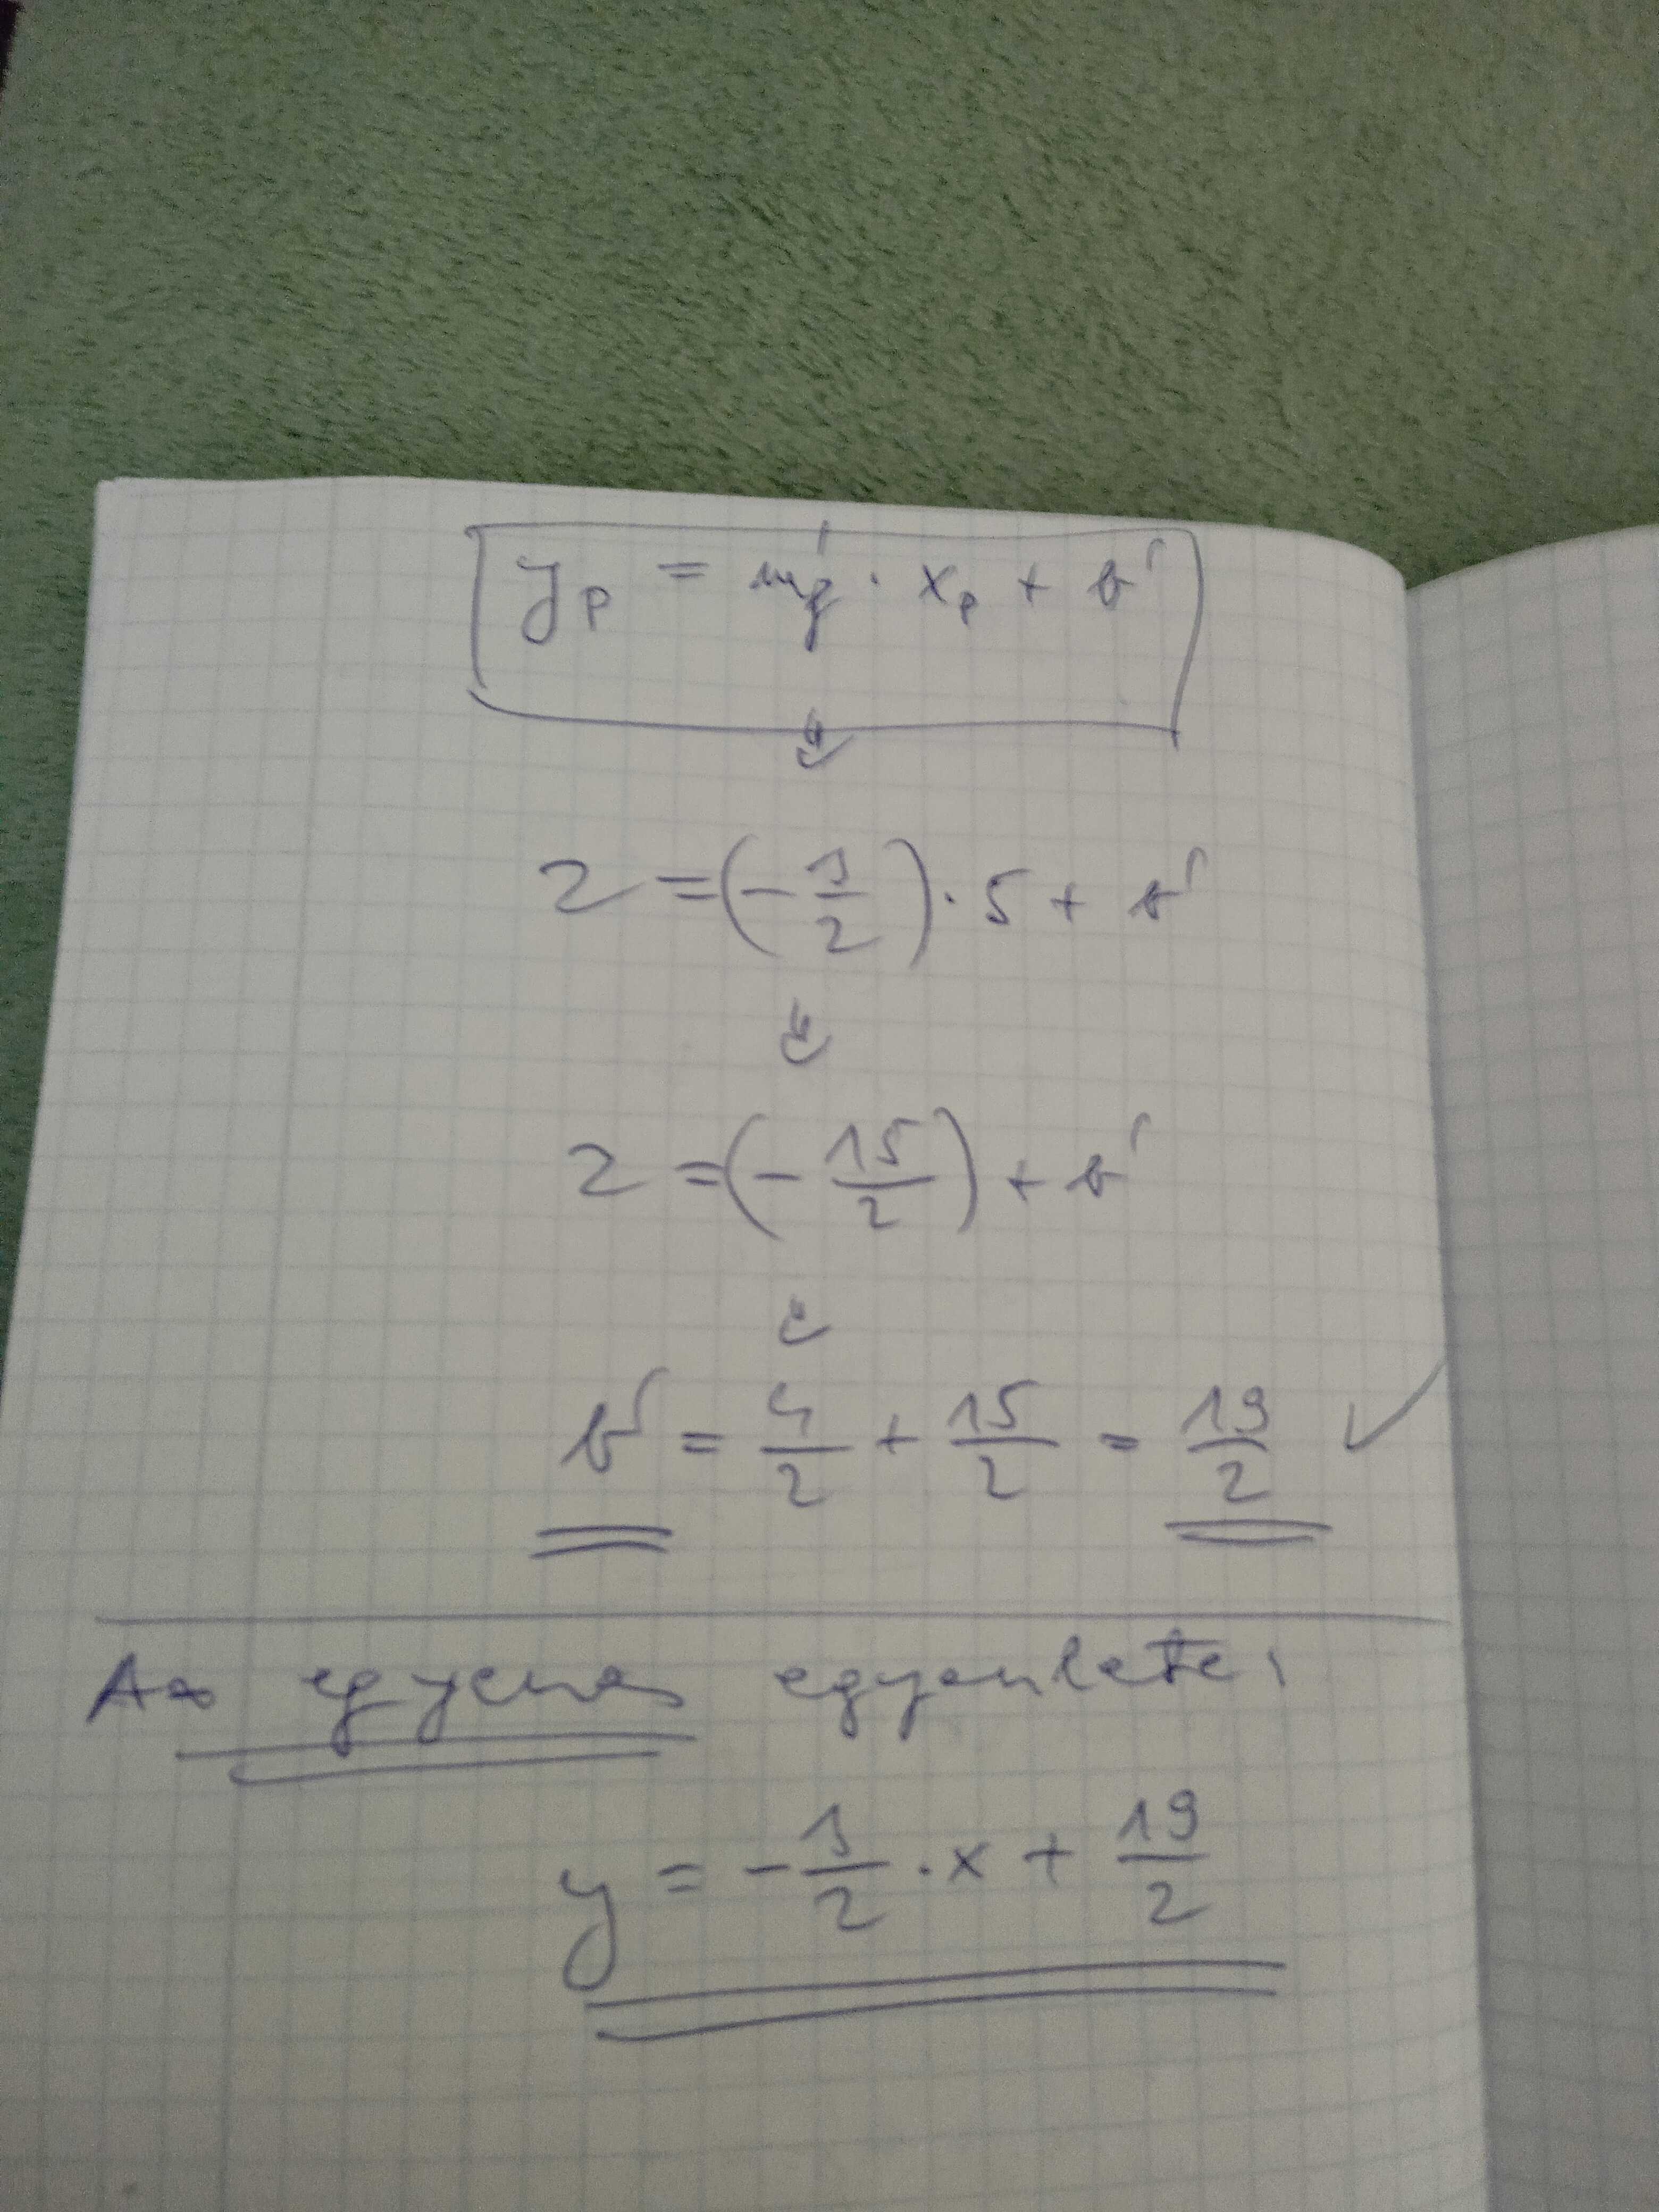 y_P = m_g' · x_P + b'
2 = (-3/2) · 5 + b'
2 = (-15/2) + b'
b' = 4/2 + 15/2 = 19/2 ✓
Az egyenes egyenlete:
y = -3/2 · x + 19/2